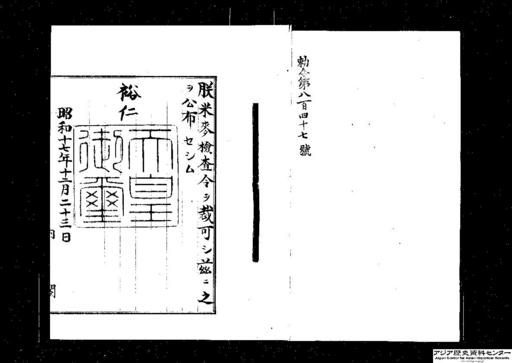 勅令第八百四十七號
朕米麥檢査令ヲ裁可シ茲ニ之
ヲ公布セシム
裕仁
天皇
御璽
昭和十七年十二月二十三日
内閣
アジア歴史資料センター
Japan Center for Asian Historical Records